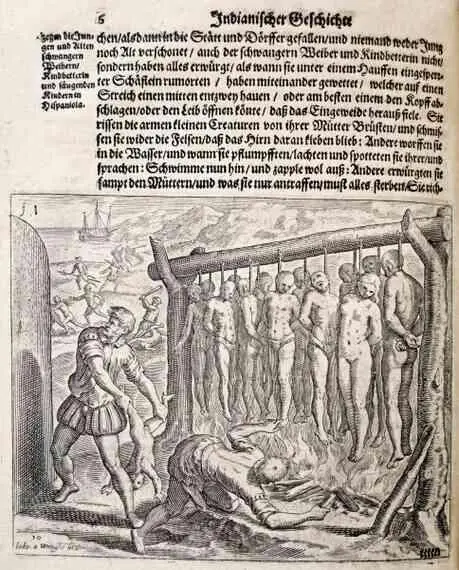 6
Indianischer Geschichte
gegen die Jun-
gen und Alten
schwangern
Weibern/
Kindbetterin
und säugenden
Kindern in
Hispaniola.
chen/als dann in die Stätt und Dörffer gefallen/und niemand weder Jung
noch Alt verschonet/ auch der schwangern Weiber und Kindbetterin nicht/
sondern haben alles erwürgt/als wann sie unter einem Hauffen eingesper-
ter Schäflein rumorten / haben miteinander gewettet / welcher auf einen
Streich einen mitten entzwey hauen / oder am besten einem den Kopff ab-
schlagen/oder den Leib öffnen könte/ daß das Eingeweide heraus fiele. Sie
rissen die armen kleinen Creaturen von ihrer Mütter Brüsten/und schmis-
sen sie wider die Felsen/daß das Hirn daran kleben blieb: Andere worffen sie
in die Wasser/und wann sie pflumpfften/lachten und spotteten sie ihrer/und
sprachen: Schwimme nun hin/ und zapple wol auß: Andere erwürgten sie
sampt den Müttern/und was sie nur antraffen/must alles sterben/Sie rich-